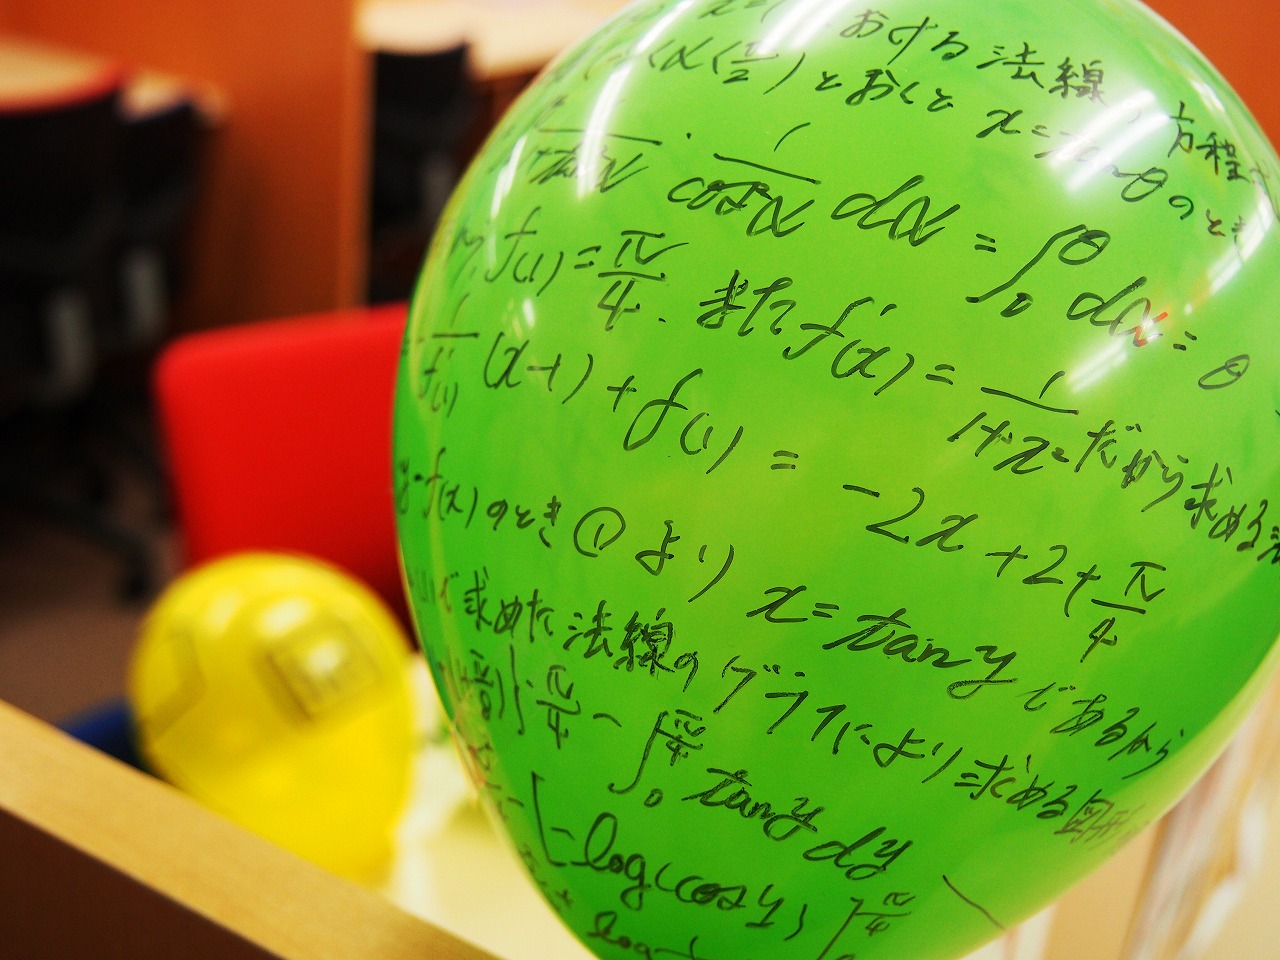 x=1 おける法線の方程
α(π/2) とおくと x=tanθのとき
1/(1+tan²α)・1/cos²α dα = ∫₀^θ dα = θ
f(1)=π/4. また f'(x)= 1/(1+x²) だから求める法
1/f'(1) (x-1)+f(1) = -2x+2+π/4
y=f(x)のとき ① より x=tany であるから
で求めた法線のグラフにより求める図形
π/4 - ∫₀^(π/4) tany dy
[-log(cosy)]^(π/4)
log